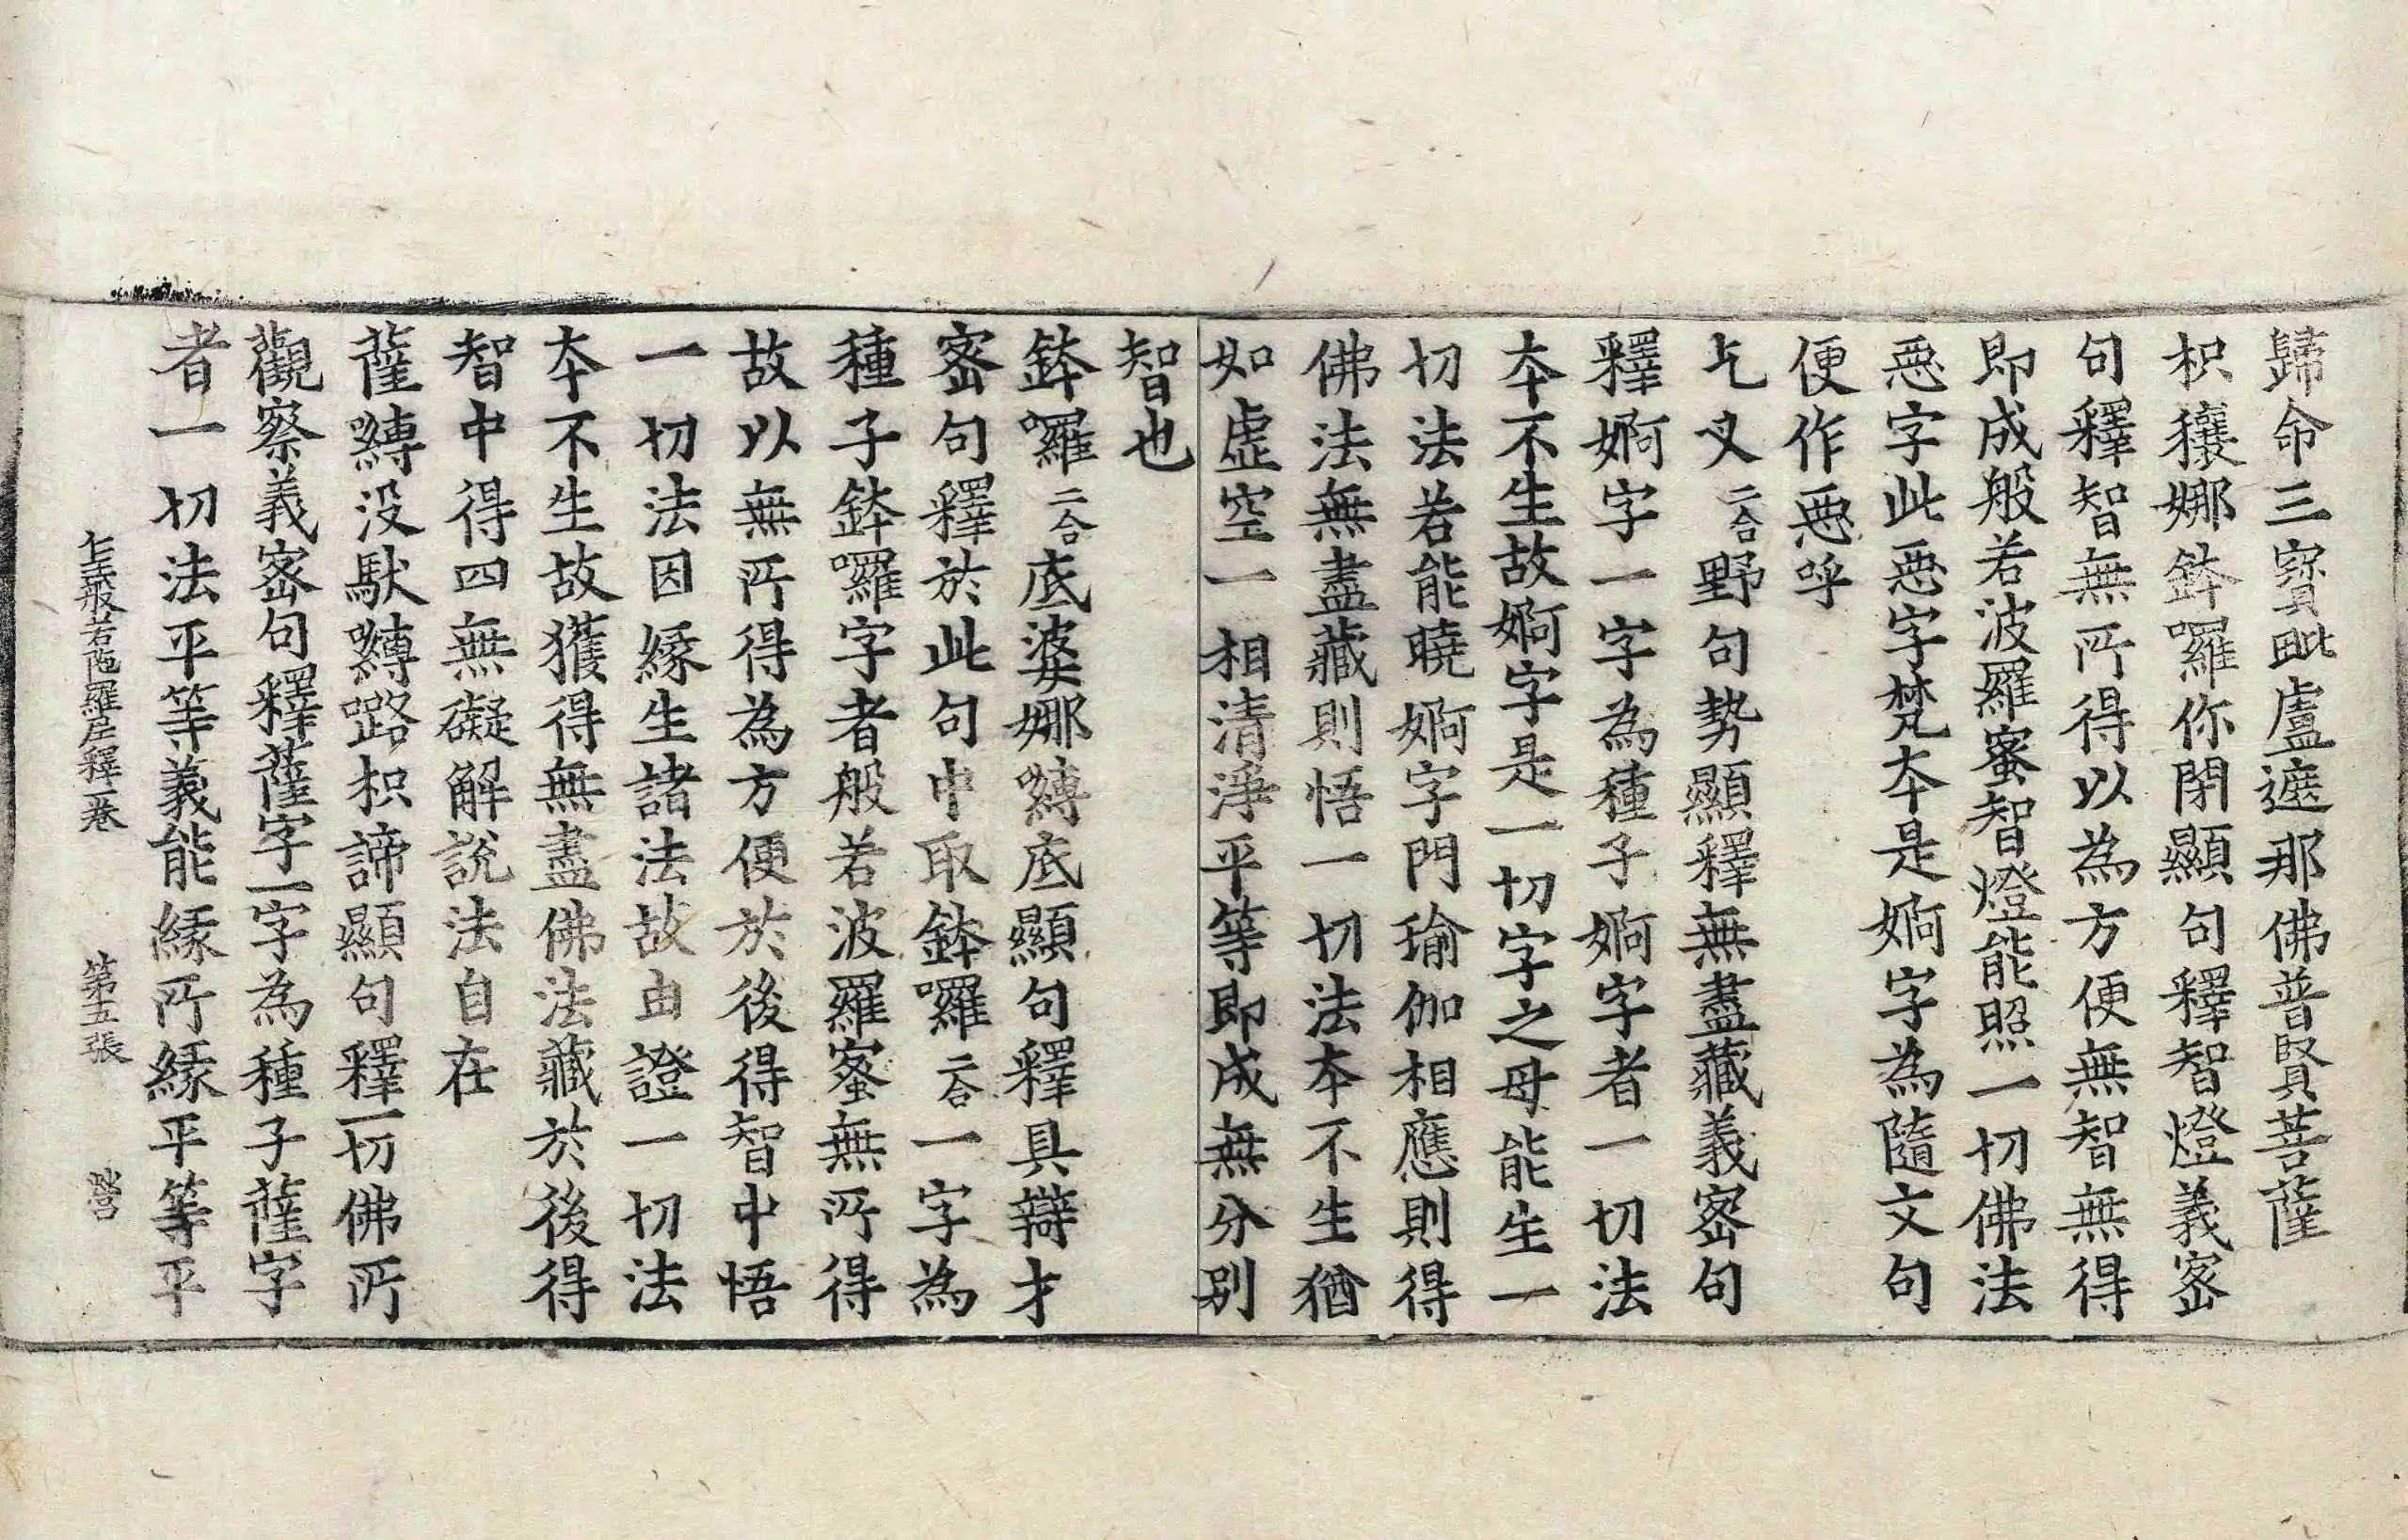 歸命三寳毗盧遮那佛普賢菩薩
枳穰娜鉢囉你閇顯句釋智燈義宻
句釋智無所得以為方便無智無得
即成般若波羅蜜智燈能照一切佛法
惡字此惡字梵夲是婀字為隨文句
便作惡呼
乞叉二合野句勢顯釋無盡藏義宻句
釋婀字一字為種子婀字者一切法
夲不生故婀字是一切字之母能生一
切法若能曉婀字門瑜伽相應則得
佛法無盡藏則悟一切法夲不生猶
如虛空一相清淨平等即成無分別
智也
鉢囉二合底婆娜嚩底顯句釋具辯才
宻句釋於此句中取鉢囉二合一字為
種子鉢囉字者般若波羅蜜無所得
故以無所得為方便於後得智中悟
一切法因緣生諸法故由證一切法
夲不生故獲得無盡佛法藏於後得
智中得四無礙解說法自在
薩嚩没馱嚩嚧枳諦顯句釋一切佛所
觀察義宻句釋薩字一字為種子薩字
者一切法平等義能緣所緣平等平
仁王般若陁羅尼釋一卷 第五張 營